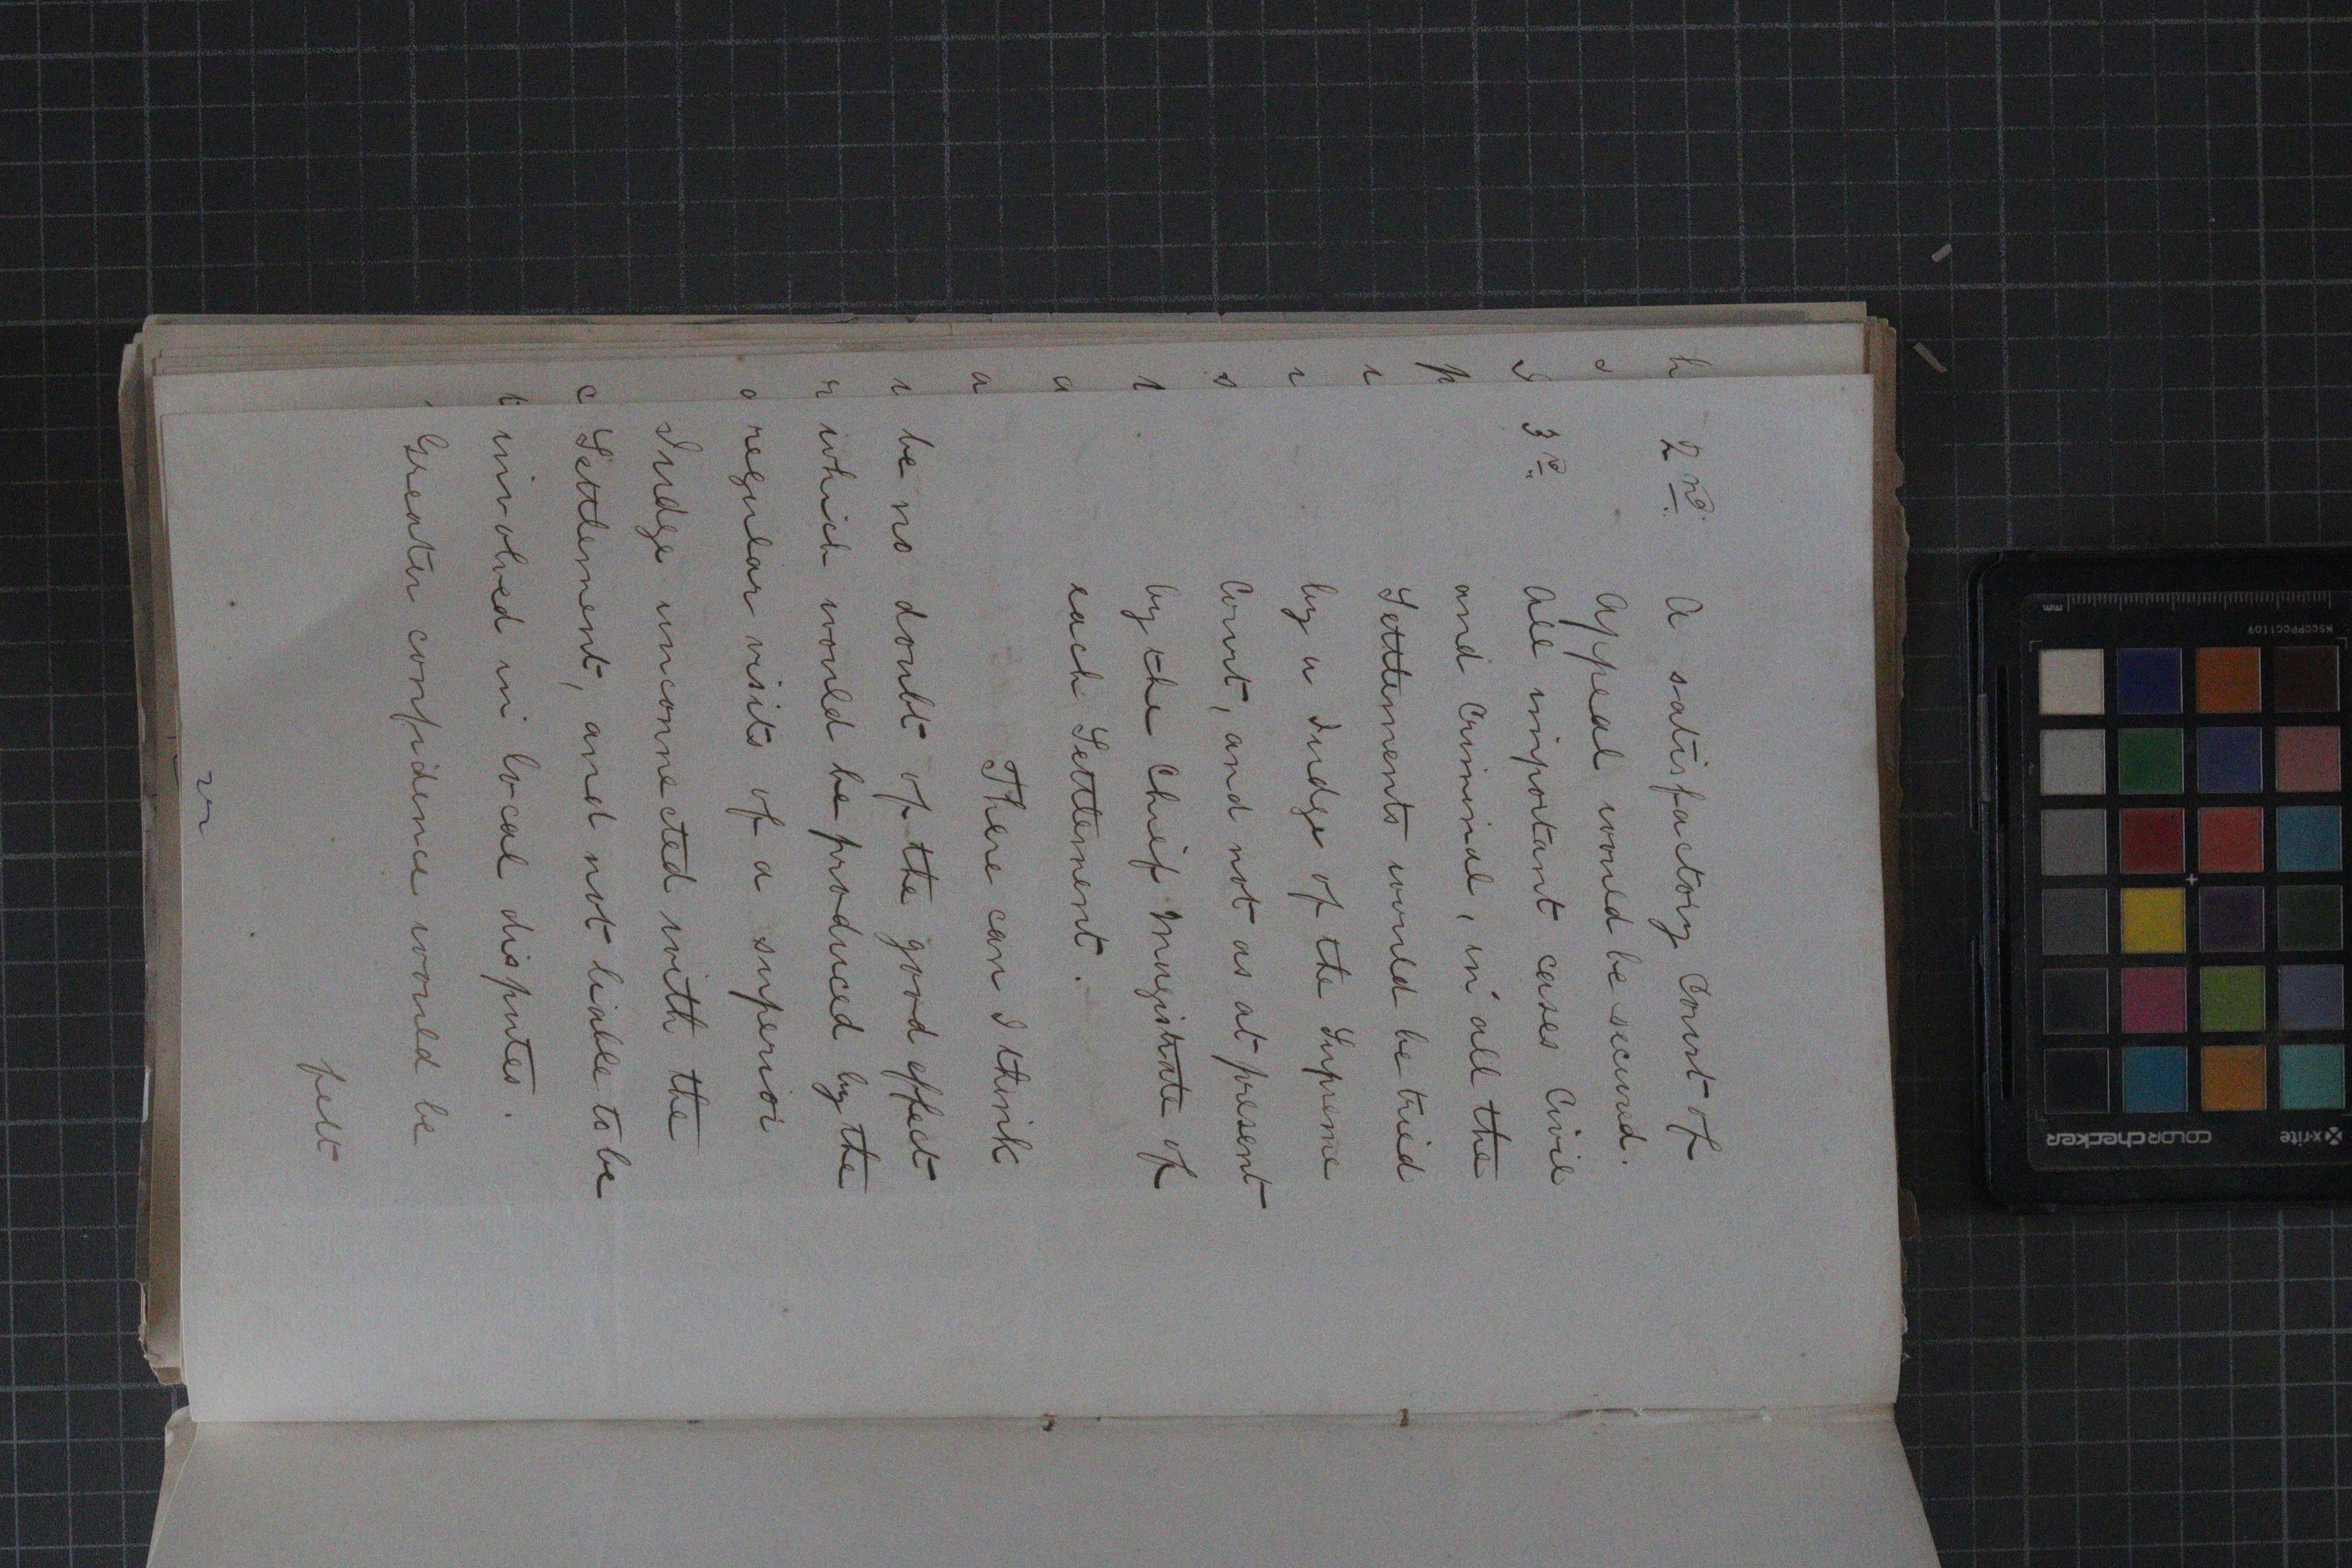 2nd. A satisfactory Court of
Appeal would be secured.
3rd. All important cases Civil
and Criminal, in all the
Settlements would be tried
by a Judge of the Supreme
Court, and not as at present
by the Chief Magistrate of
each Settlement.
There can I think
be no doubt of the good effect
which would be produced by the
regular visits of a superior
Judge unconnected with the
Settlement, and not liable to be
involved in local disputes.
Greater confidence would be
felt
mm
MSCCPPCC1109
x-rite
colorchecker